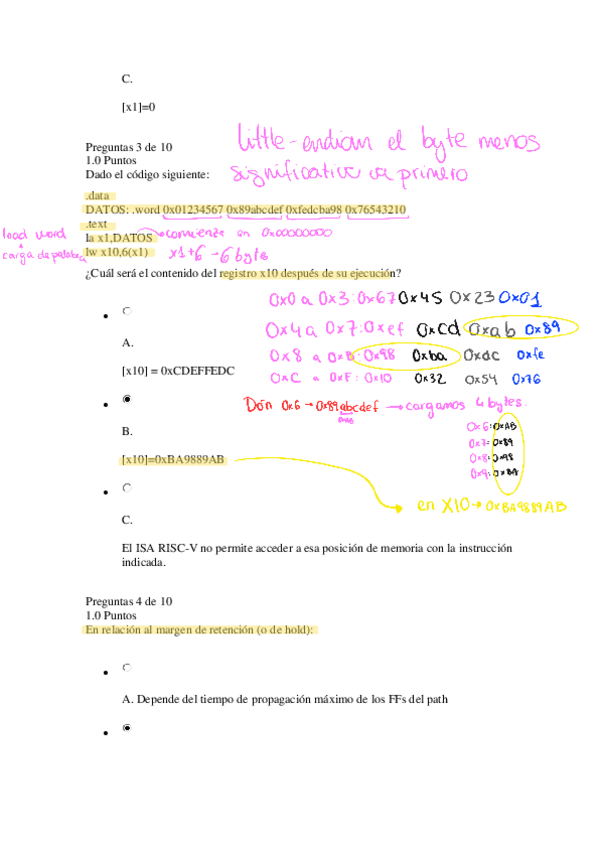 C.
[x1]=0
little-endian el byte menos
significativo va primero
Preguntas 3 de 10
1.0 Puntos
Dado el código siguiente:
.data
DATOS: .word 0x01234567 0x89abcdef 0xfedcba98 0x76543210
.text
load word
carga de palabra
la x1,DATOS
comienza en 0x00000000
lw x10,6(x1)
x1+6 → 6 byte
¿Cuál será el contenido del registro x10 después de su ejecución?
0x0 a 0x3: 0x67 0x45 0x23 0x01
0x4 a 0x7: 0xef 0xcd 0xab 0x89
A.
0x8 a 0xB: 0x98 0xba 0xdc 0xfe
[x10] = 0xCDEFFEDC
0xC a 0xF: 0x10 0x32 0x54 0x76
0x6 → 0x89abcdef → cargamos 4 bytes.
0x6: 0xAB
B.
0x7: 0x89
[x10]=0xBA9889AB
0x8: 0x98
0x9: 0xBA
en X10 → 0xBA9889AB
C.
El ISA RISC-V no permite acceder a esa posición de memoria con la instrucción
indicada.
Preguntas 4 de 10
1.0 Puntos
En relación al margen de retención (o de hold):
A. Depende del tiempo de propagación máximo de los FFs del path